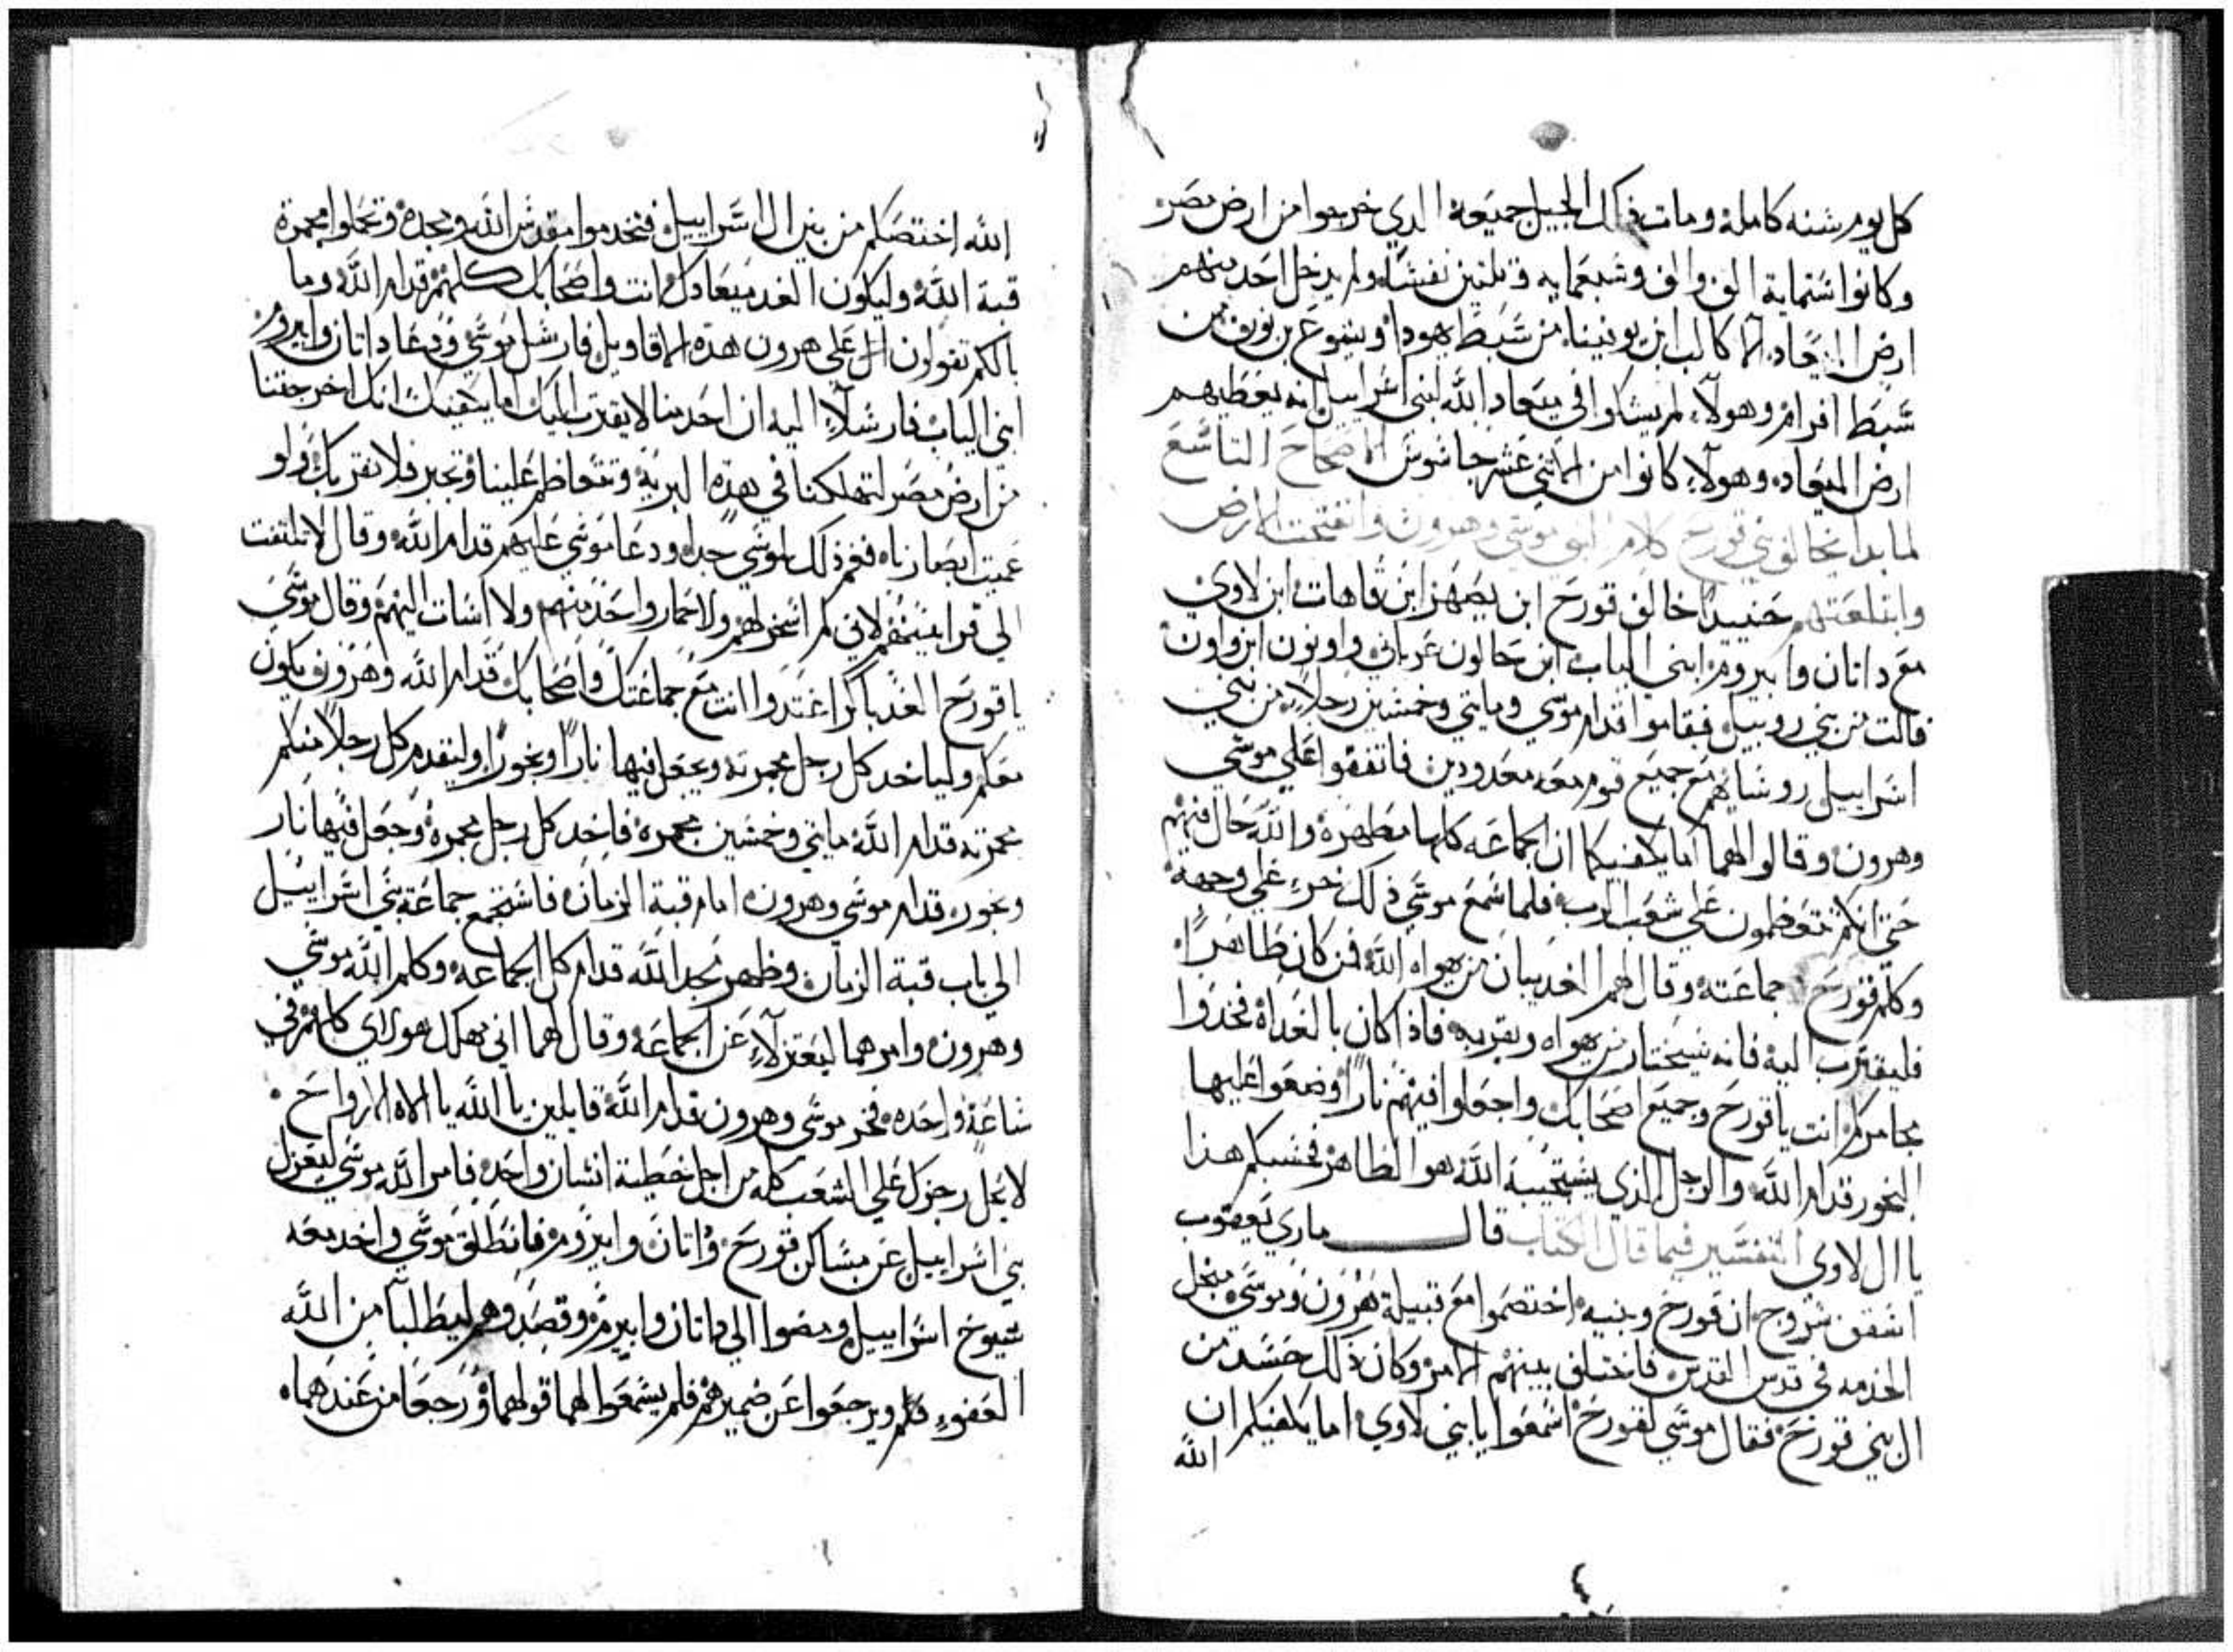 كل يوم سنه كامله ومات في ذلك الجيل جميعه الدي خرجوا من ارض مصر
وكانوا ستماية الف والف وسبعمايه وثلثين نفسًا ولم يدخل احد منهم
ارض الميعاد الا كالب ابن يوفينا من سبط يهودا ويشوع بن نون من
سبط افرام وهولاء لم يشكوا في ميعاد الله لبني اسراييل انه يعطيهم
ارض الميعاد وهولاء كانوا من الاثني عشر جاسوس الاصحاح التاسع
لما بدا يخالف بني قورح كلام الله موسي وهرون وانفتحت الارض
وابتلعتهم حنييدًا خالف قورح ابن يصهر ابن قاهات ابن لاوي
مع داتان وابيروم ابني الياب ابن حالون عربان واونون ابن واون
فالت من بني روبيل فقاموا قدام موسي ومايتي وخمسين رجلاً من بني
اسراييل روساهم مع جميع قوم معه معدودين فاتفقوا علي موسي
وهرون وقالوا لهما اما يكفيكما ان الجماعه كلها مطهره والله حال فيهم
حتي انكم تتعظمون علي شعب الرب فلما سمع موسي ذلك خر علي وجهه
وكلم قورح جماعته وقال لهم الغد يبان من يهواه الله فمن كان طاهرًا
فليقترب اليه فانه سيختار من يهواه ويقربه فاذا كان بالغداه فخدوا
مجامركم انت ياقورح وجميع اصحابك واجعلوا فيهم نارًا وضعوا عليها
البخور قدام الله والرجل الذي يستجيبه الله هو الطاهر فحسبكم هذا
يا ال لاوي التفسير فيما قال الكتاب قال ماري يعقوب
اسقف سروج ان قورح وبنيه اختصموا مع قبيلة هرون وموسي من اجل
الخدمه في قدس القدس فاختلف بينهم الامر وكان ذلك حسد من
ال بني قورح فقال موسي لقورح اسمعوا يا بني لاوي اما يكفيكم ان
الله
الله اختصكم من بين ال اسراييل فتخدموا مقدس الله وحده وتحملوا مجمرة
قبة الله وليكون الغد ميعادك انت واصحابك كلهم قدام الله وما
بالكم تقولون ال علي هرون هذه الاقاويل فارسل موسي ودعا داتان وابيروم
ابني الياب فارسلاً اليه ان احد منا لا يقترب اليك اما يكفيك انك اخرجتنا
من ارض مصر لتهلكنا في هذه البرية وتتعاظم علينا وتجبر فلا نقربك ولو
عميت ابصارنا فغم ذلك لموسي جدا ودعا موسي عليهم قدام الله وقال لا تلتفت
الي قرابينهم لاني لم اسخر لهم ولا حمار واحد منهم ولا اسات اليهم وقال موسي
يا قورح الغد باكرا اعتدوا انت مع جماعتك واصحابك قدام الله وهرون يكون
معكم ولياخد كل رجل مجمرته ويجعل فيها نارًا وبخورًا وليتقدم كل رجلاً منكم
بمجمرته قدام الله مايتي وخمسين مجمره فاخد كل رجل مجمره وجعل فيها نار
وبخوره قدام موسي وهرون امام قبة الزمان فاستجمع جماعة بني اسراييل
الي باب قبة الزمان وظهر مجد الله قدام كل الجماعه وكلم الله موسي
وهرون وامرهما ليعتزلآء عن الجماعه وقال لهما اني مهلك هولاي كلهم في
ساعة واحده فخر موسي وهرون قدام الله قايلين يا الله يا الاه الارواح
لا يحل رجزك علي الشعب كله من اجل خطية انسان واحد فامر الله موسي ليعزل
بني اسراييل عن مساكن قورح وداتان وابيروم فانطلق موسي واخد معه
شيوخ اسراييل ومضوا الي داتان وابيروم وقصدوهم ليطلبا من الله
العفو فلم ويرجعوا عن ضميرهم فلم يسمعوا لهما قولهما ورجعا من عندهما